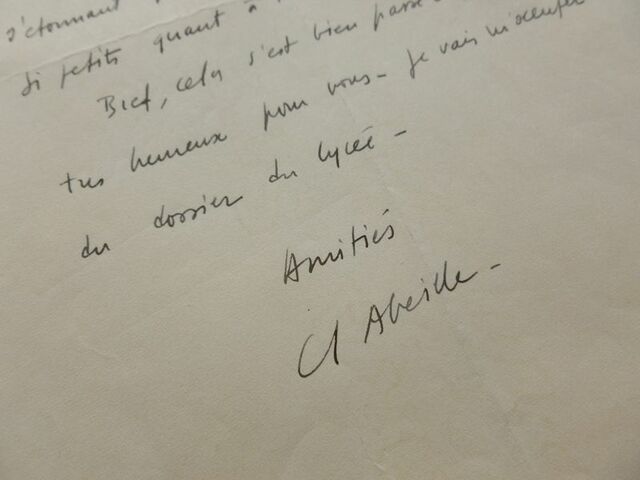 s'étonnant
si petits quant à
Bref, cela s'est bien passé
très heureux pour vous - Je vais m'occuper
du dossier du lycée -
Amitiés
Cl Abeille -